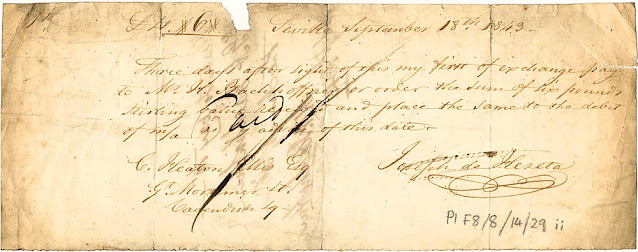 Seville September 18th 1843
Three days after sight of this my first of exchange pay
to Mr. H. or order the sum of six pounds
Stirling value received and place the same to the debit
of m/a as by advice of this date
C. Heaton Ellis Esq
Gt. Mortimer St.
Cavendish Sq
Joseph de Hereta
Pl F8/8/14/29 ii